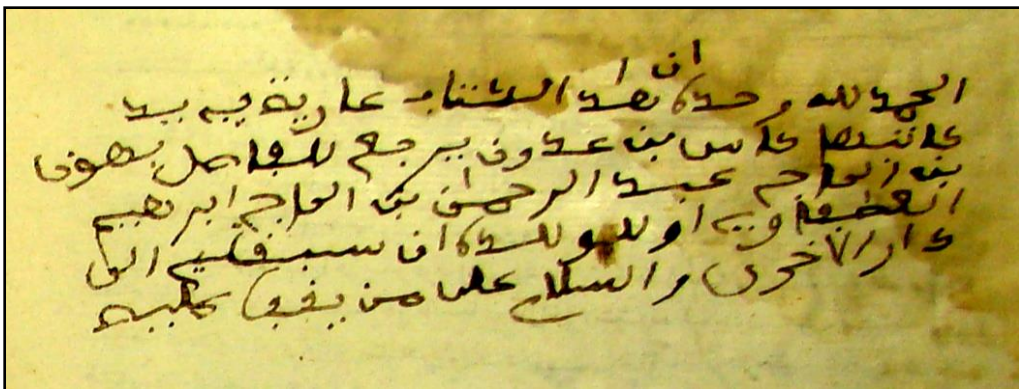 الحمد لله وحده ان هذا الكتاب عارية في يد
كاتبها عدون يرجع للفاضل
بن الحاج عبد الرحمن بن الحاج ابرهيم
او لولده ان سبقني الى
دار الاخرى والسلام على من يقف عليه